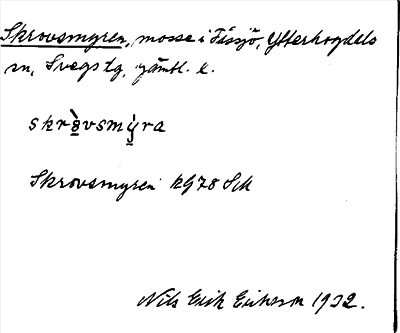 Skrovsmyren, mosse i Fåssjö, Ytterhogdals
sn, Svegs tg, jämtl. l.
skròvsmỳra
Skrovsmyren kG78 SM
Nils Erik Eriksson 1932.